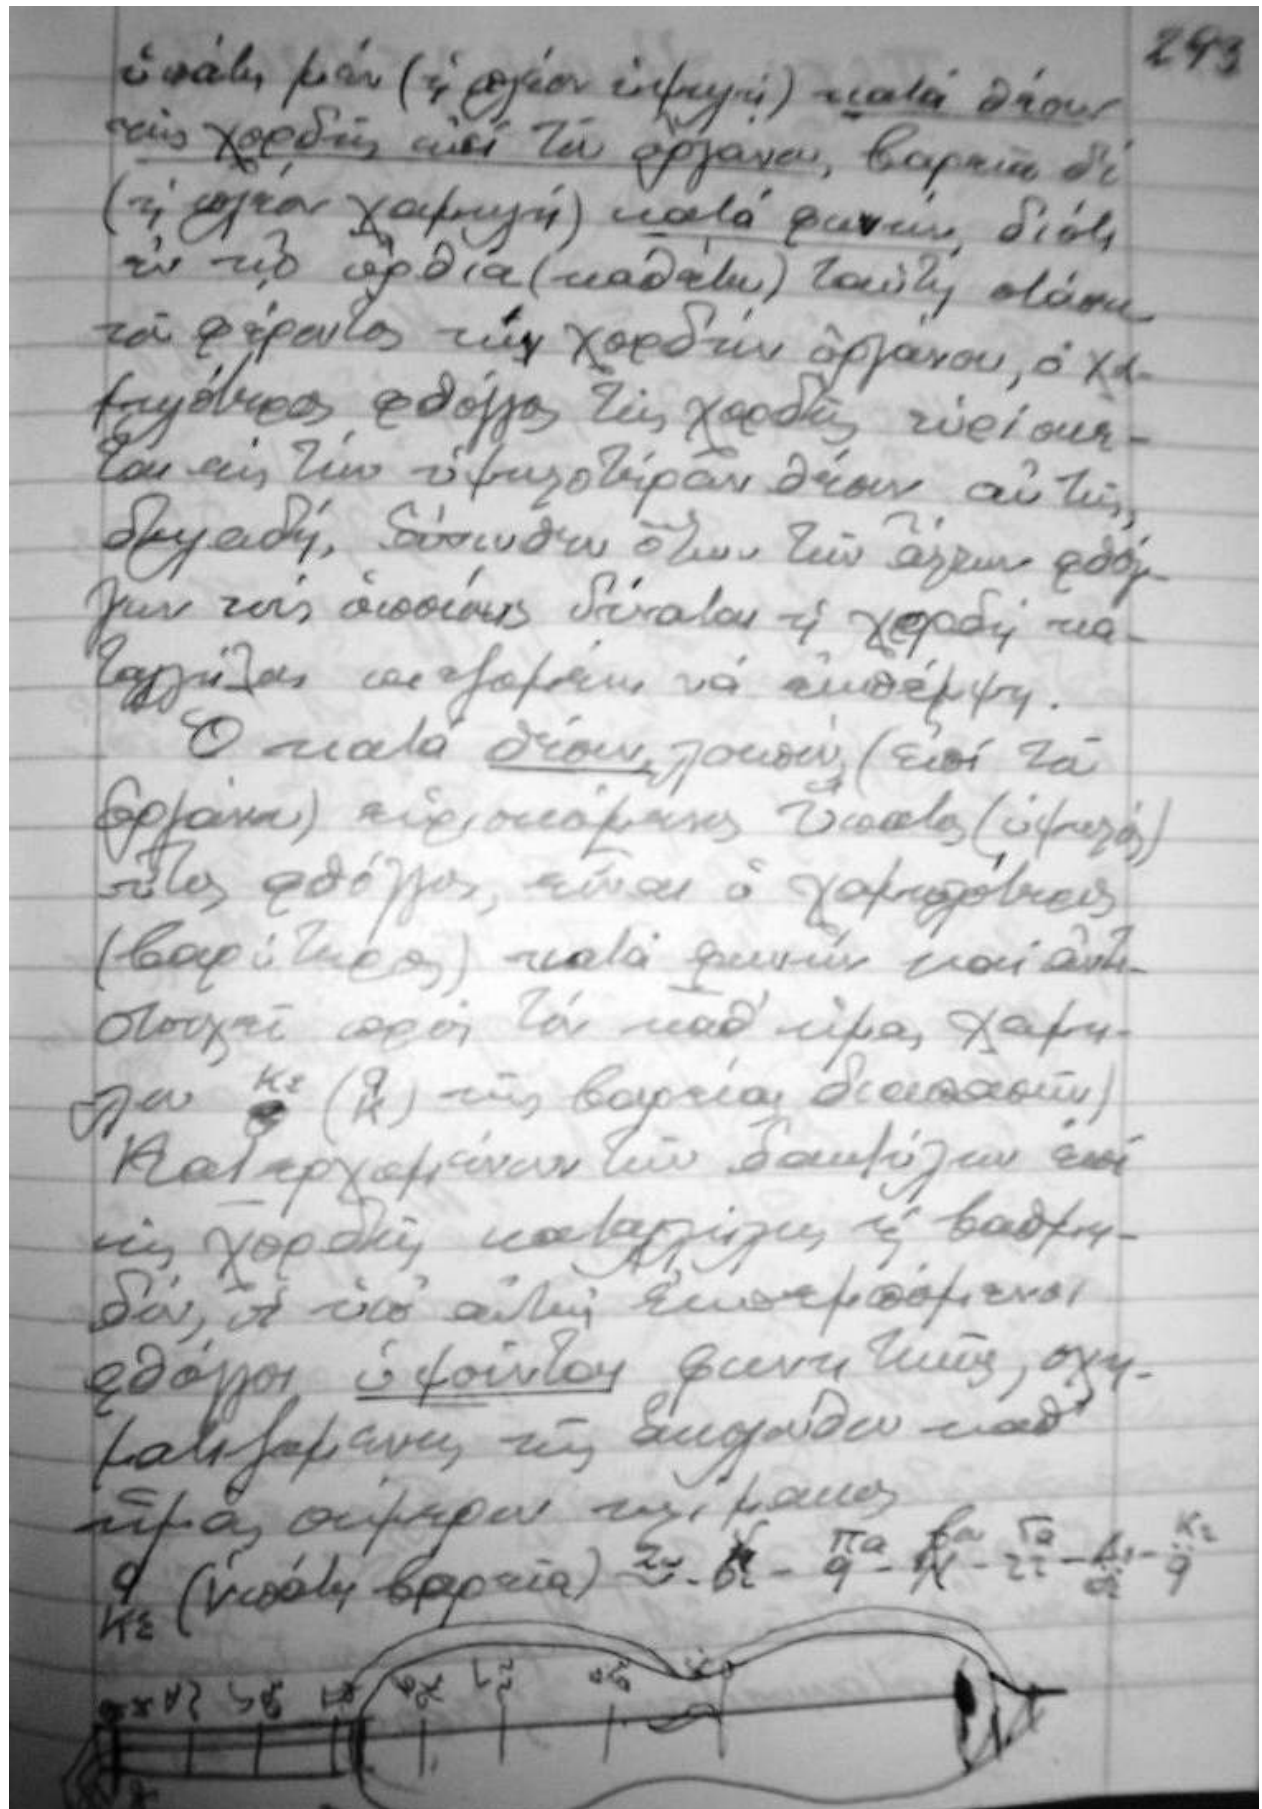 293
ὑπάτη μέν (ἡ πλέον ὑψηλή) κατά θέσιν
τῆς χορδῆς ἐπί τοῦ ὀργάνου, βαρεῖα δέ
(ἡ πλέον χαμηλή) κατά φωνήν, διότι
ἐν τῇ ὀρθίᾳ (καθέτῳ) ταύτῃ στάσει
τοῦ φέροντος τήν χορδήν ὀργάνου, ὁ χα-
μηλότερος φθόγγος τῆς χορδῆς εὑρίσκε-
ται εἰς τήν ὑψηλοτέραν θέσιν αὐτῆς,
δηλαδή, ἄνωθεν ὅλων τῶν ἄλλων φθόγ-
γων τούς ὁποίους δύναται ἡ χορδή κα-
ταλλήλως πιεζομένη νά ἐκπέμψῃ.
Ὁ κατά θέσιν, λοιπόν, (ἐπί τοῦ
ὀργάνου) εὑρισκόμενος ὕπατος (ὑψηλός)
οὗτος φθόγγος, εἶναι ὁ χαμηλότερος
(βαρύτερος) κατά φωνήν καί ἀντι-
στοιχεῖ πρός τόν καθ' ἡμᾶς χαμη-
λόν Κε (q Κ) τῆς βαρείας διαπασῶν)
Κατερχομένων τῶν δακτύλων ἐπί
τῆς χορδῆς καταλλήλως ἡ βαθμη-
δόν, οἱ ὑπ' αὐτῆς ἐκπεμπόμενοι
φθόγγοι ὑψοῦνται φωνητικῶς, σχη-
ματιζομένης τῆς ἀκολούθου καθ'
ἡμᾶς σήμερον κλίμακος
q Κε (ὑπάτη βαρεῖα) Ζω - - Πα q - Βου - Γα - Δι - Κε q